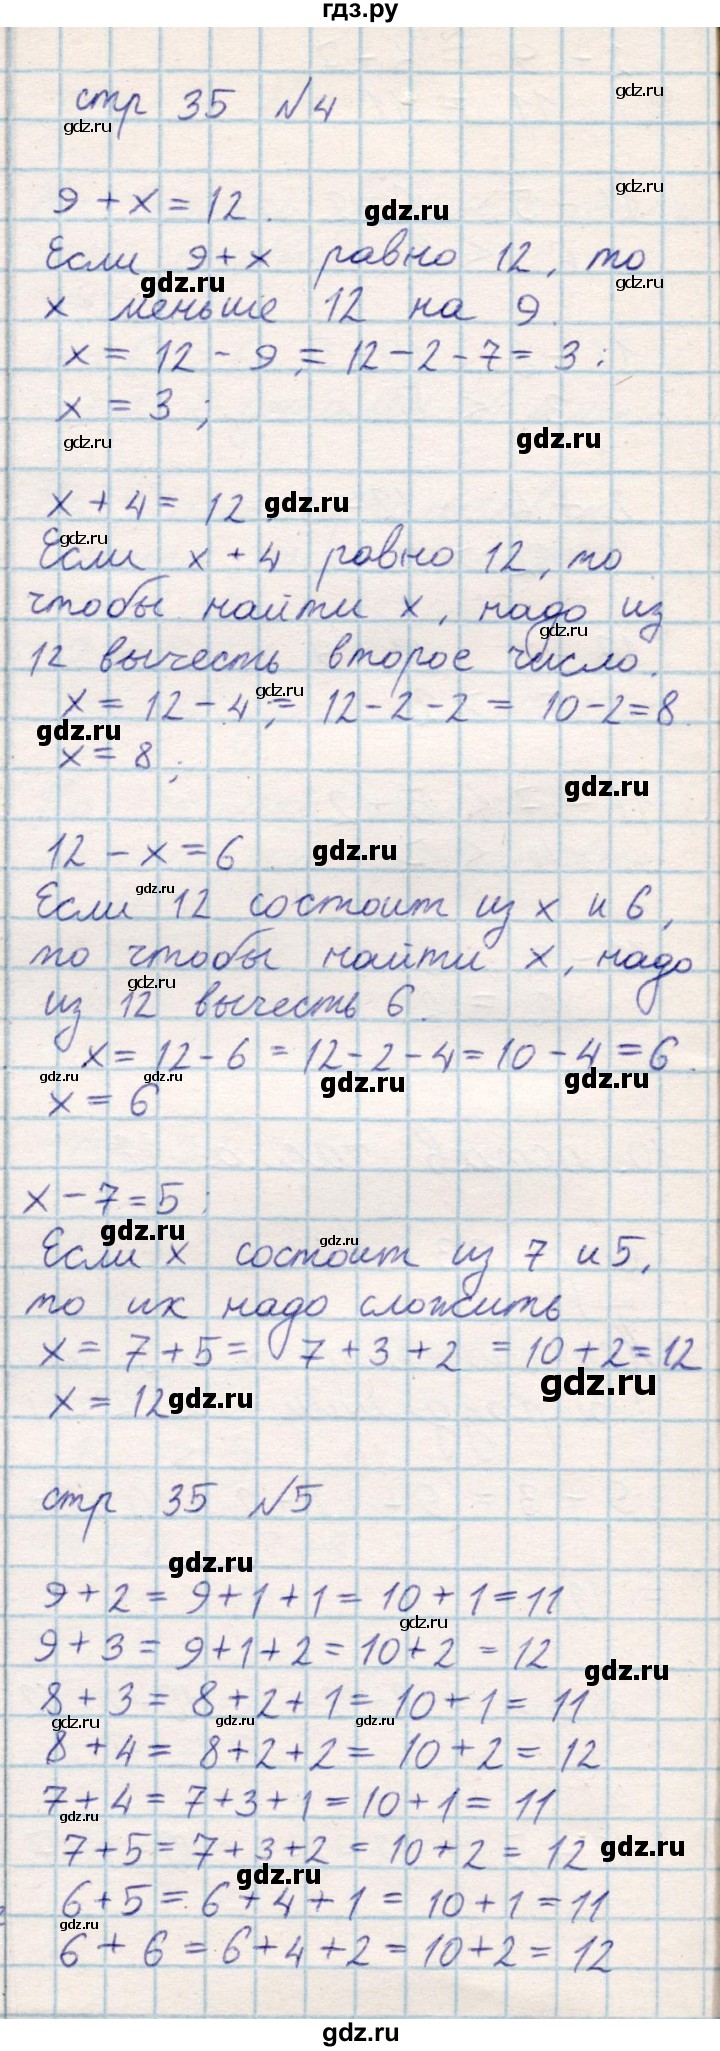 гдз.ру
стр 35 №4
gdz.ru
gdz.ru
gdz.ru
9 + x = 12.
gdz.ru
Если 9+x равно 12, то
gdz.ru
gdz.ru
x меньше 12 на 9.
x = 12 - 9; = 12 - 2 - 7 = 3;
x = 3;
gdz.ru
gdz.ru
x + 4 = 12
gdz.ru
gdz.ru
Если x + 4 равно 12, то
чтобы найти x, надо из
gdz.ru
12 вычесть второе число.
gdz.ru
x = 12 - 4; = 12 - 2 - 2 = 10 - 2 = 8
gdz.ru
x = 8;
gdz.ru
12 - x = 6
gdz.ru
gdz.ru
Если 12 состоит из x и 6,
то чтобы найти x, надо
gdz.ru
из 12 вычесть 6.
x = 12 - 6 = 12 - 2 - 4 = 10 - 4 = 6.
gdz.ru
gdz.ru
gdz.ru
gdz.ru
x = 6
x - 7 = 5;
gdz.ru
gdz.ru
Если x состоит из 7 и 5,
то их надо сложить
x = 7 + 5 = 7 + 3 + 2 = 10 + 2 = 12
gdz.ru
x = 12
gdz.ru
стр 35 №5
gdz.ru
9 + 2 = 9 + 1 + 1 = 10 + 1 = 11
gdz.ru
9 + 3 = 9 + 1 + 2 = 10 + 2 = 12
gdz.ru
8 + 3 = 8 + 2 + 1 = 10 + 1 = 11
gdz.ru
gdz.ru
gdz.ru
8 + 4 = 8 + 2 + 2 = 10 + 2 = 12
7 + 4 = 7 + 3 + 1 = 10 + 1 = 11
gdz.ru
7 + 5 = 7 + 3 + 2 = 10 + 2 = 12
gdz.ru
gdz.ru
6 + 5 = 6 + 4 + 1 = 10 + 1 = 11
gdz.ru
6 + 6 = 6 + 4 + 2 = 10 + 2 = 12
gdz.ru